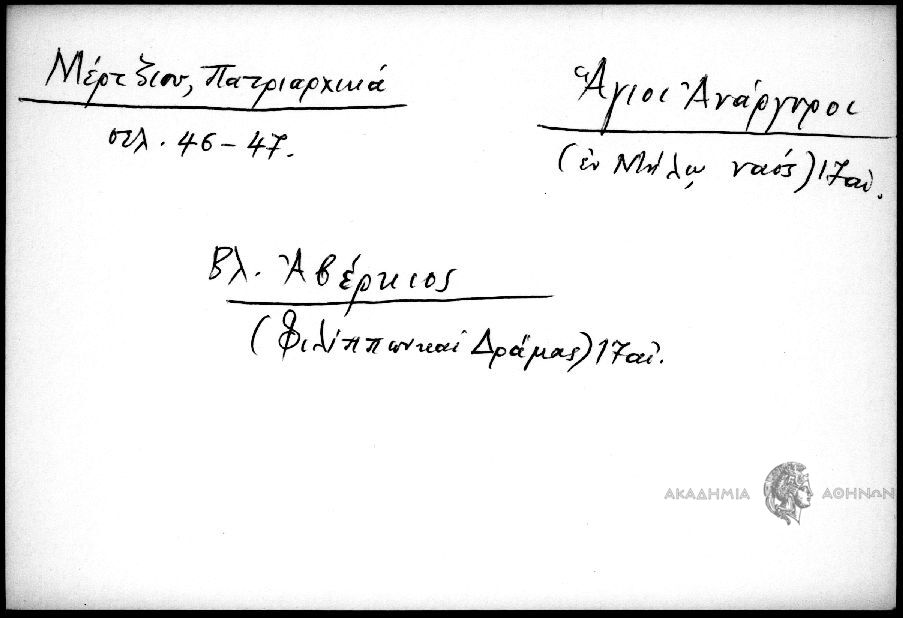 Μέρτζιου, Πατριαρχικά
σελ. 46-47.
Ἅγιοι Ἀνάργυροι
(ἐν Μήλῳ ναός) 17 αἰ.
Βλ. Ἀβέρκιος
(Φιλίππων καί Δράμας) 17 αἰ.
ΑΚΑΔΗΜΙΑ ΑΘΗΝΩΝ